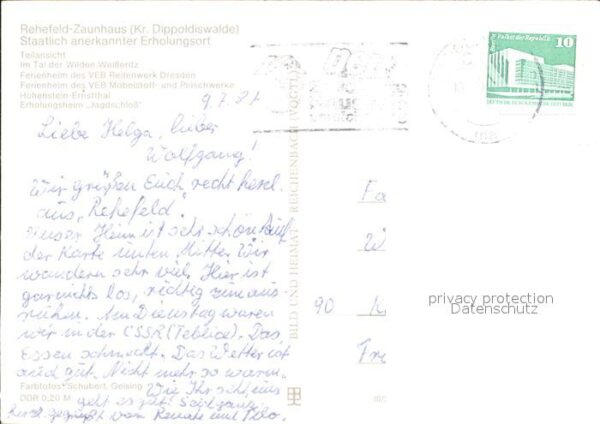 Rehefeld-Zaunhaus (Kr. Dippoldiswalde)
Staatlich anerkannter Erholungsort
Teilansicht
Im Tal der Wilden Weißeritz
Ferienheim des VEB Reifenwerk Dresden
Ferienheim des VEB Möbelstoff- und Plüschwerke
Hohenstein-Ernstthal
Erholungsheim „Jagdschloß"
9.7.81
Liebe Helga, lieber
Wolfgang!
Wir grüßen Euch recht herzl.
aus „Rehefeld".
Unser Heim ist sehr schön. Auf
der Karte unten Mitte. Wir
wandern sehr viel. Hier ist
gar nichts los, richtig zum aus-
ruhen. Am Dienstag waren
wir in der CSSR (Teplice). Das
Essen schmeckt. Das Wetter ist
auch gut. Nicht mehr so warm.
Wie Ihr seht, uns
geht es gut. Seid ganz
herzl. gegrüßt von Renate und
Farbfotos: Schubert, Geising
DDR 0,20 M
BILD UND HEIMAT REICHENBACH (VOGTL)
Palast der Republik
10
90
Fre
privacy protection
Datenschutz